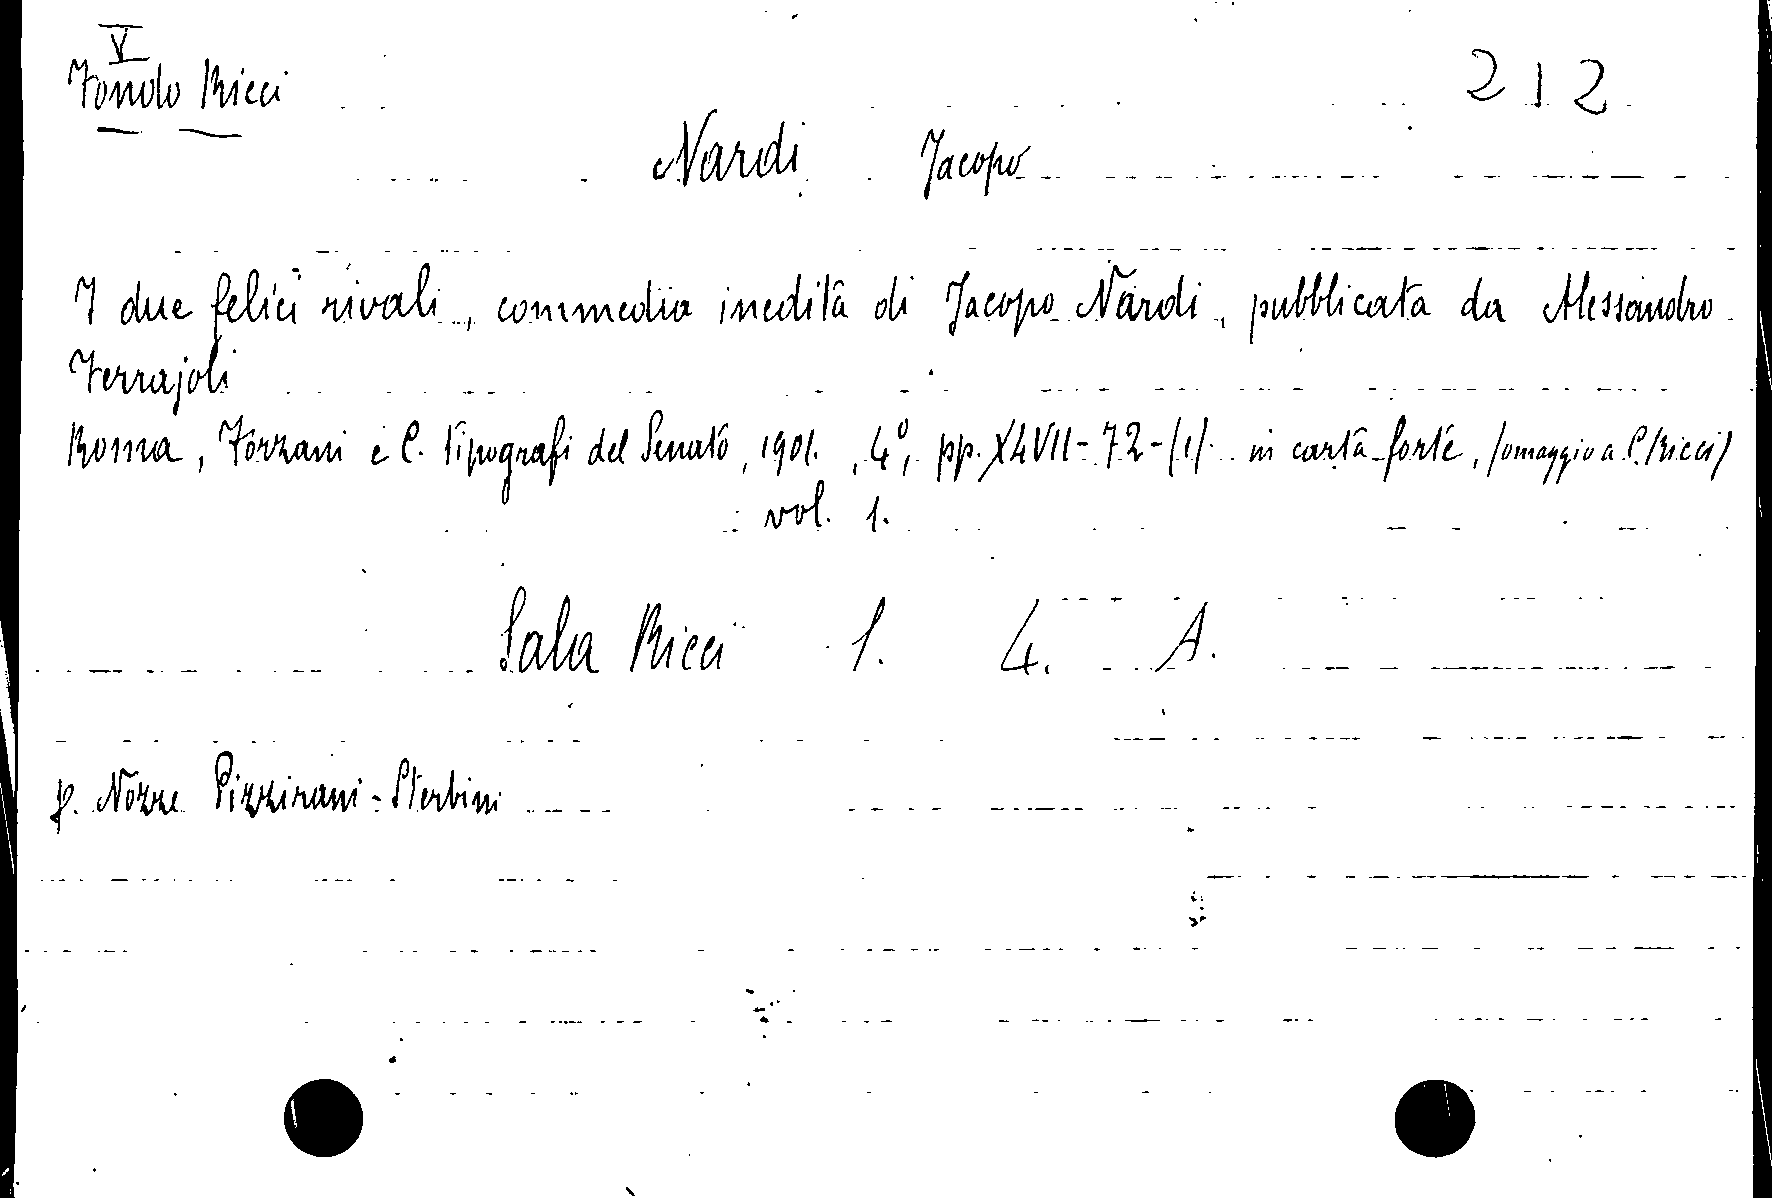 V
Fondo Ricci
212
Nardi Jacopo
I due felici rivali, commedia inedita di Jacopo Nardi, pubblicata da Alessandro
Ferrajoli
Roma, Forzani e C. tipografi del Senato, 1901. , 4°, pp. XLVII-72-(1). in carta forte, (omaggio a C. Ricci)
vol. 1.
Sala Ricci 1. 4. A.
p. Nozze Pizzirani-Sterbini